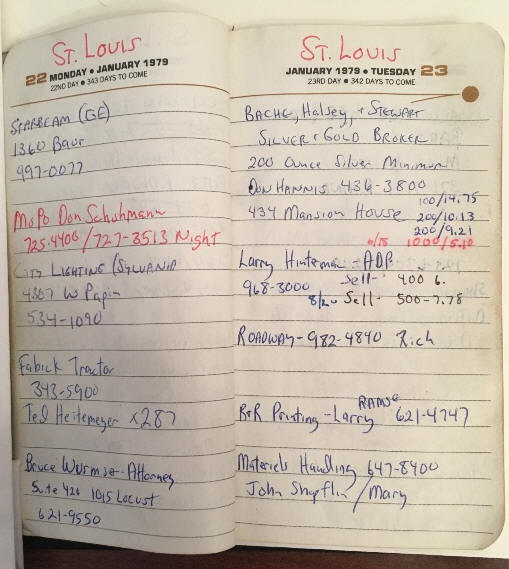 St. Louis
22 MONDAY • JANUARY 1979
22ND DAY • 343 DAYS TO COME
STARBEAM (GE)
1360 Baur
997-0077
MoPo Don Schuhmann
725-4400 / 727-3513 Night
CITY LIGHTING (SYLVANIA
4307 W Papin
534-1090
Fabick Tractor
343-5900
Ted Heitemeyer x287
Bruce Wurmser-Attorney
Suite 426 1015 Locust
621-9550
St. Louis
JANUARY 1979 • TUESDAY 23
23RD DAY • 342 DAYS TO COME
BACHE, Halsey, + STEWART
SILVER + GOLD BROKER
200 Ounce Silver Minimum
DON HANNIS 436-3800
100/14.75
434 Mansion House 200/10.13
200/9.21
1000/5.40
Larry Hinteman ADP
968-3000 Sell- 400 6.
8/20 Sell- 500-7.78
ROADWAY-982-4840 Rich
R+R Printing-Larry 621-4747
Materials Handling 647-8400
John Shopflin/Mary